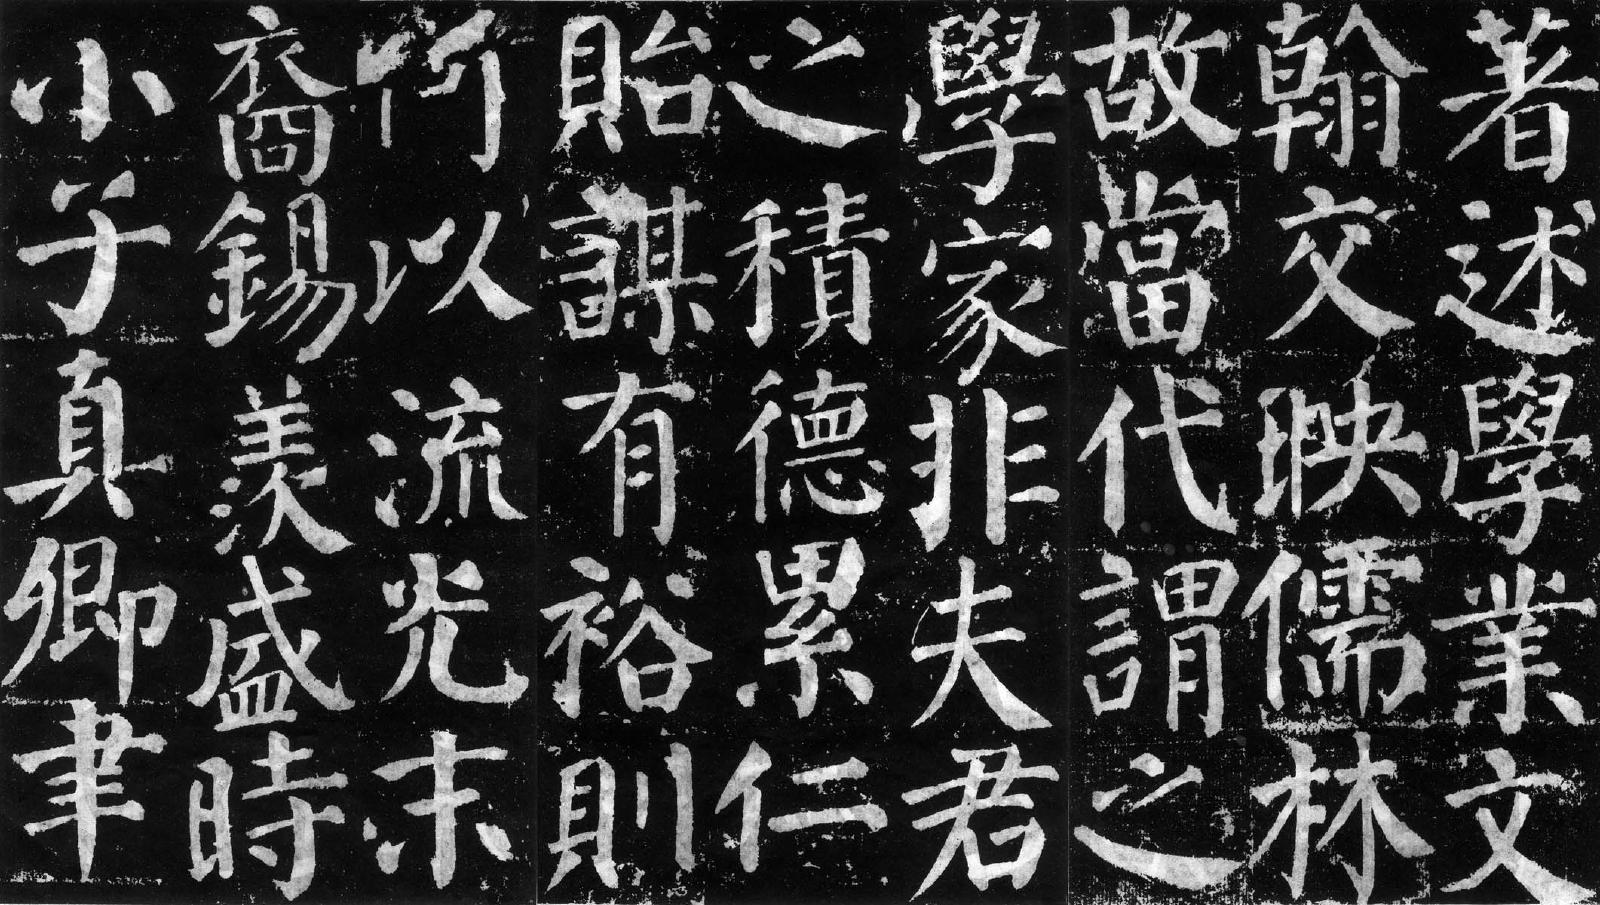 著述學業文
翰交映儒林
故當代謂之
學家非夫君
之積德累仁
貽謀有裕則
何以流光末
裔錫羨盛時
小子真卿聿